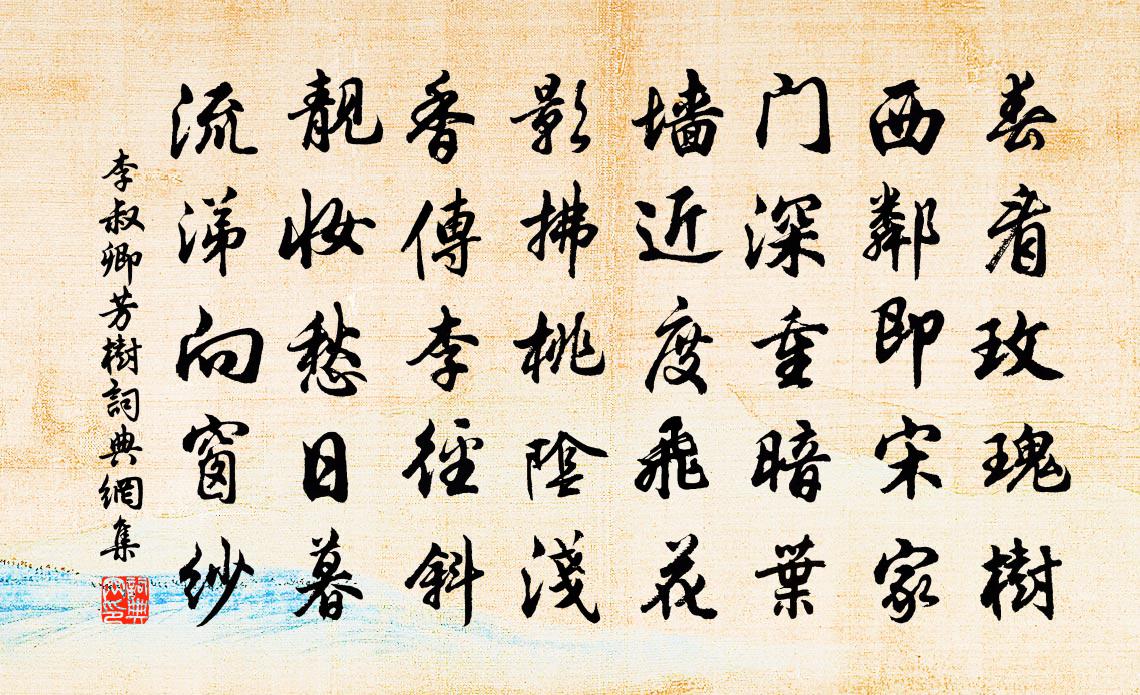 春看玫瑰樹
西鄰即宋家
门深重暗葉
墙近度飛花
影拂桃陰淺
香傳李徑斜
靚妝愁日暮
流涕向窗紗
李叔卿芳樹詞典網集